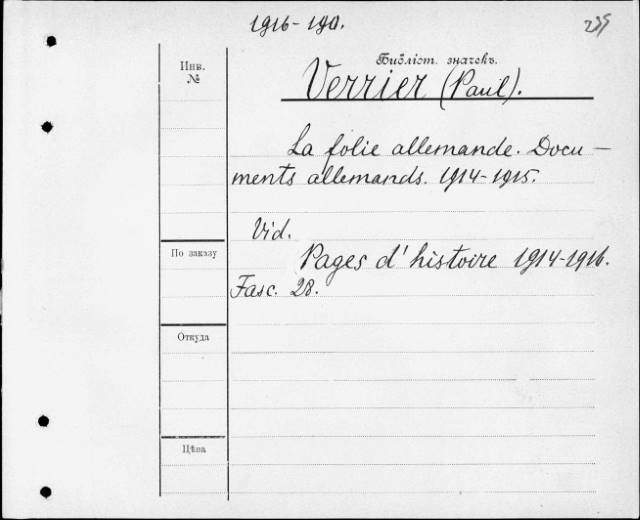 1916-190.
239
Инв.
№
Библіот. значекъ.
Verrier (Paul).
La folie allemande. Docu-
ments allemands. 1914-1915.
Vid.
По заказу
Pages d'histoire 1914-1916.
Fasc. 28.
Откуда
Цѣна